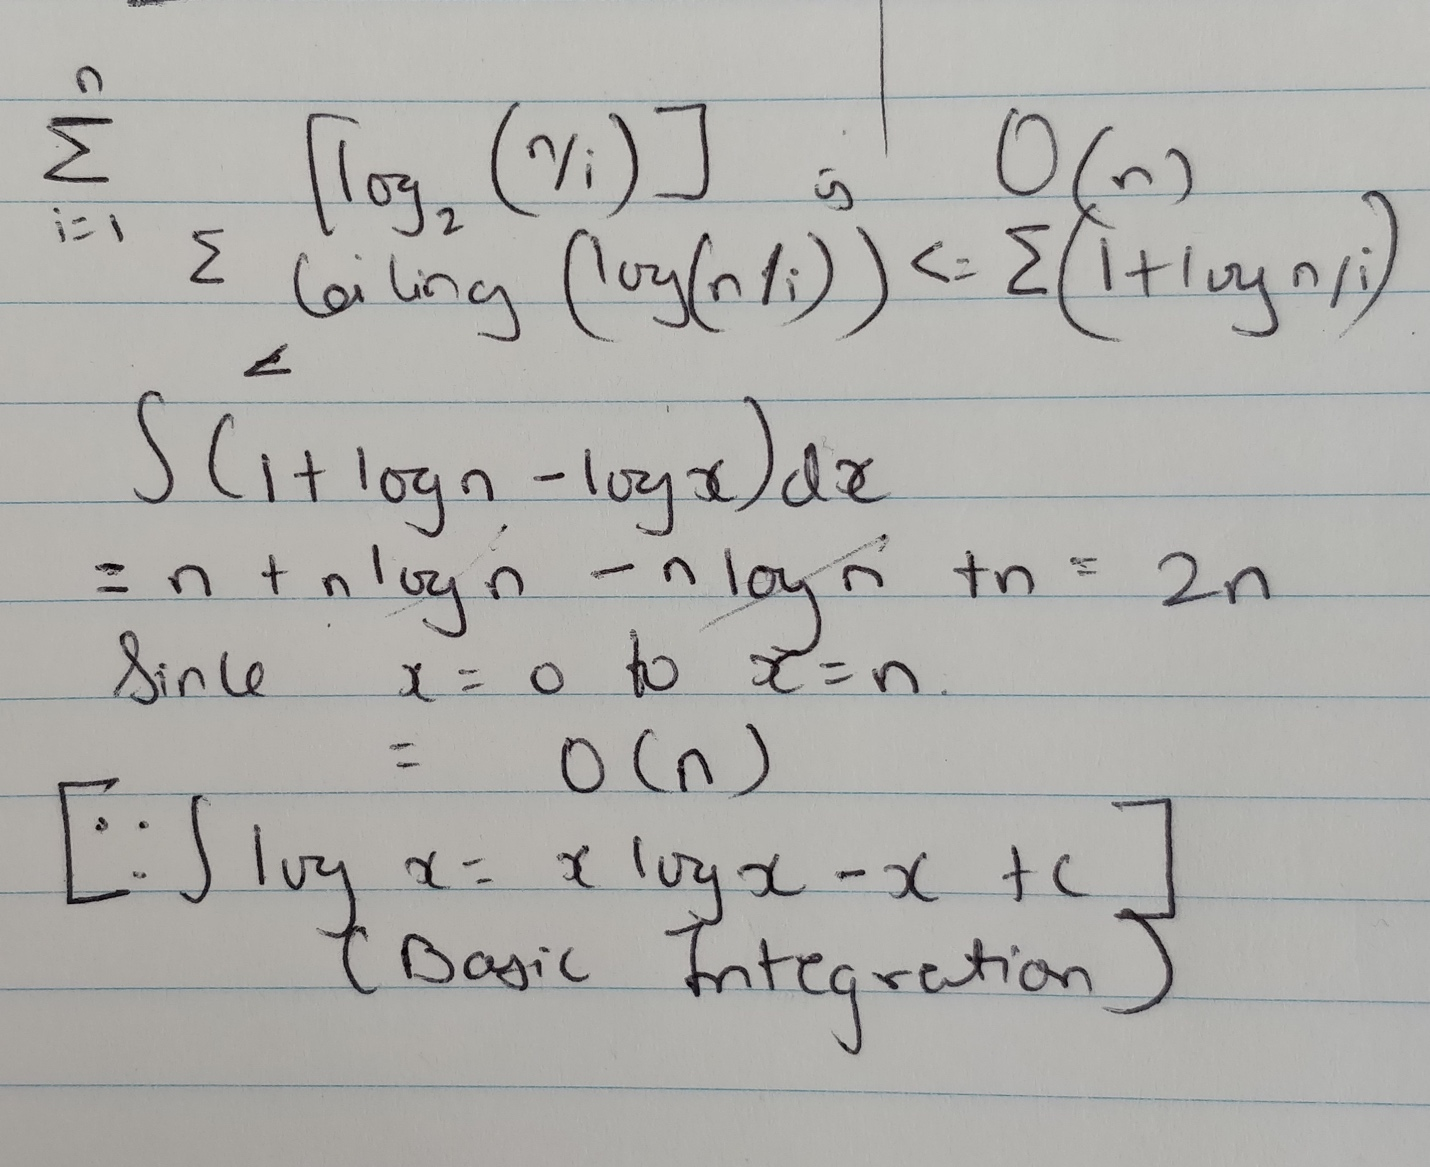 n
Σ ⌈log₂ (n/i)⌉ is O(n)
i=1
Σ Ceiling (log(n/i)) <= Σ(1+log n/i)
<
∫(1+logn -logx)dx
= n + nlogn - nlogn +n = 2n
Since x = 0 to x=n.
= O(n)
[∵ ∫ log x = x logx - x + c]
(Basic Integration)